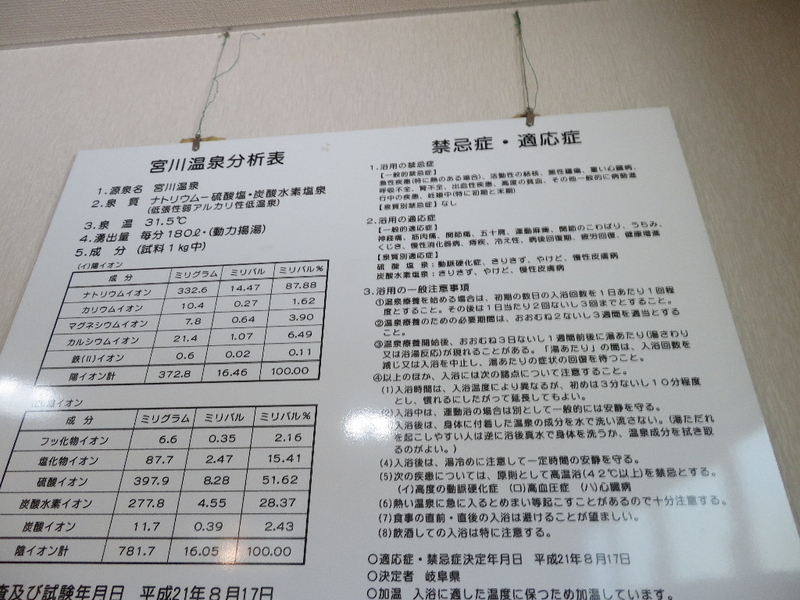 宮川温泉分析表
1.源泉名 宮川温泉
2.泉 質 ナトリウムー硫酸塩・炭酸水素塩泉
(低張性弱アルカリ性低温泉)
3.泉 温 31.5℃
4.湧出量 毎分180ℓ・(動力揚湯)
5.成 分 (試料1kg中)
(イ)陽イオン
成 分 ミリグラム ミリバル ミリバル%
ナトリウムイオン 332.6 14.47 87.88
カリウムイオン 10.4 0.27 1.62
マグネシウムイオン 7.8 0.64 3.90
カルシウムイオン 21.4 1.07 6.49
鉄(II)イオン 0.6 0.02 0.11
陽イオン計 372.8 16.46 100.00
陰イオン
成 分 ミリグラム ミリバル ミリバル%
フッ化物イオン 6.6 0.35 2.16
塩化物イオン 87.7 2.47 15.41
硫酸イオン 397.9 8.28 51.62
炭酸水素イオン 277.8 4.55 28.37
炭酸イオン 11.7 0.39 2.43
陰イオン計 781.7 16.05 100.00
査及び試験年月日 平成21年8月17日
禁忌症・適応症
1.浴用の禁忌症
【一般的禁忌症】
急性疾患(特に熱のある場合)、活動性の結核、悪性腫瘍、重い心臓病、
呼吸不全、腎不全、出血性疾患、高度の貧血、その他一般的に病勢進
行中の疾患、妊娠中(特に初期と末期)
【泉質別禁忌症】なし
2.浴用の適応症
【一般的適応症】
神経痛、筋肉痛、関節痛、五十肩、運動麻痺、関節のこわばり、うちみ、
くじき、慢性消化器病、痔疾、冷え性、病後回復期、疲労回復、健康増進
【泉質別適応症】
硫 酸 塩 泉:動脈硬化症、きりきず、やけど、慢性皮膚病
炭酸水素塩泉:きりきず、やけど、慢性皮膚病
3.浴用の一般注意事項
①温泉療養を始める場合は、初期の数日の入浴回数を1日あたり1回程
度とすること。その後は1日当たり2回ないし3回までとすること。
②温泉療養のための必要期間は、おおむね2ないし3週間を適当とする
こと。
③温泉療養開始後、おおむね3日ないし1週間前後に湯あたり(湯さわり
又は浴湯反応)が現れることがある。「湯あたり」の間は、入浴回数を
減じ又は入浴を中止し、湯あたりの症状の回復を待つこと。
④以上のほか、入浴には次の諸点について注意すること。
(1)入浴時間は、入浴温度により異なるが、初めは3分ないし10分程度
とし、慣れるにしたがって延長してもよい。
(2)入浴中は、運動浴の場合は別として一般的には安静を守る。
入浴後は、身体に付着した温泉の成分を水で洗い流さない。(湯ただれ
を起こしやすい人は逆に浴後真水で身体を洗うか、温泉成分を拭き取
るのがよい。)
(4)入浴後は、湯冷めに注意して一定時間の安静を守る。
(5)次の疾患については、原則として高温浴(42℃以上)を禁忌とする。
(イ)高度の動脈硬化症 (ロ)高血圧症 (ハ)心臓病
(6)熱い温泉に急に入るとめまい等起こすことがあるので十分注意する。
(7)食事の直前・直後の入浴は避けることが望ましい。
(8)飲酒しての入浴は特に注意する。
○適応症・禁忌症決定年月日 平成21年8月17日
○決定者 岐阜県
○加温 入浴に適した温度に保つため加温しています。